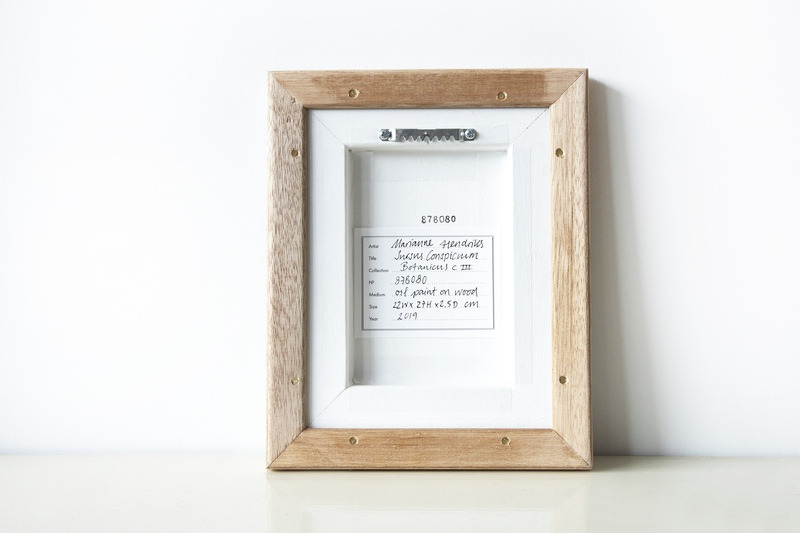 878080
Artist Marianne Hendriks
Title Sursus Conspicuum
Collection Botanicus C III
Nº 878080
Medium oil paint on wood
Size 22W x 27H x 2.5D cm
Year 2019